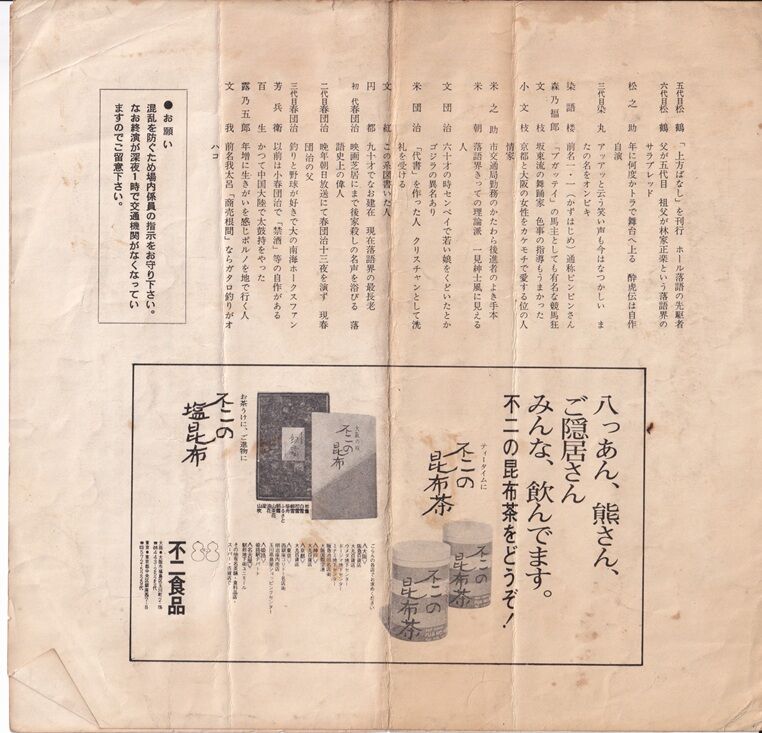 五代目松鶴 「上方ばなし」を刊行 ホール落語の先駆者
六代目松鶴 父が五代目 祖父が林家正楽という落語界の
サラブレッド
松之助 年に何度かトラで舞台へ上る 酔虎伝は自作
自演
三代目染丸 アッアッと云う笑い声も今はなつかしい ま
たの名をオンビキ
染語楼 前名一・一(かずはじめ)通称ピンピンさん
森乃福郎 「ブガッティ」の馬主としても有名な競馬狂
文枝 坂東流の舞踊家 色事の指導もうまかった
小文枝 京都と大阪の女性をカケモチで愛する位の人
情家
米之助 市交通局勤務のかたわら後進者のよき手本
米朝 落語界きっての理論派 一見紳士風に見える
人
文団治 六十才の時センベイで若い娘をくどいたとか
ゴジラの異名あり
米団治 「代書」を作った人 クリスチャンとして洗
礼を受ける
文紅 この系図書いた人
円都 九十才でなお建在 現在落語界の最長老
初代春団治 映画芝居にまで後家殺しの名声を浴びる 落
語史上の偉人
二代目春団治 晩年朝日放送にて春団治十三夜を演ず 現春
団治の父
三代目春団治 釣りと野球が好きで大の南海ホークスファン
芳兵衛 以前は小春団治で「禁酒」等の自作がある
百生 かつて中国大陸で太鼓持をやった
露乃五郎 年増に生きがいを感じポルノを地で行く人
文我 前名我太呂「商売根問」ならガタロ釣りがオ
ハコ
●お願い
混乱を防ぐため場内係員の指示をお守り下さい。
なお終演が深夜1時で交通機関がなくなってい
ますのでご留意下さい。
八っあん、熊さん、
ご隠居さん
みんな、飲んでます。
不二の昆布茶をどうぞ!
ティータイムに
不二の
昆布茶
不二の
昆布茶
不二の
昆布茶
お茶うけに、ご進物に
不二の
塩昆布
大阪の味
不二の
昆布
こちらの各店でお求めください
不二食品